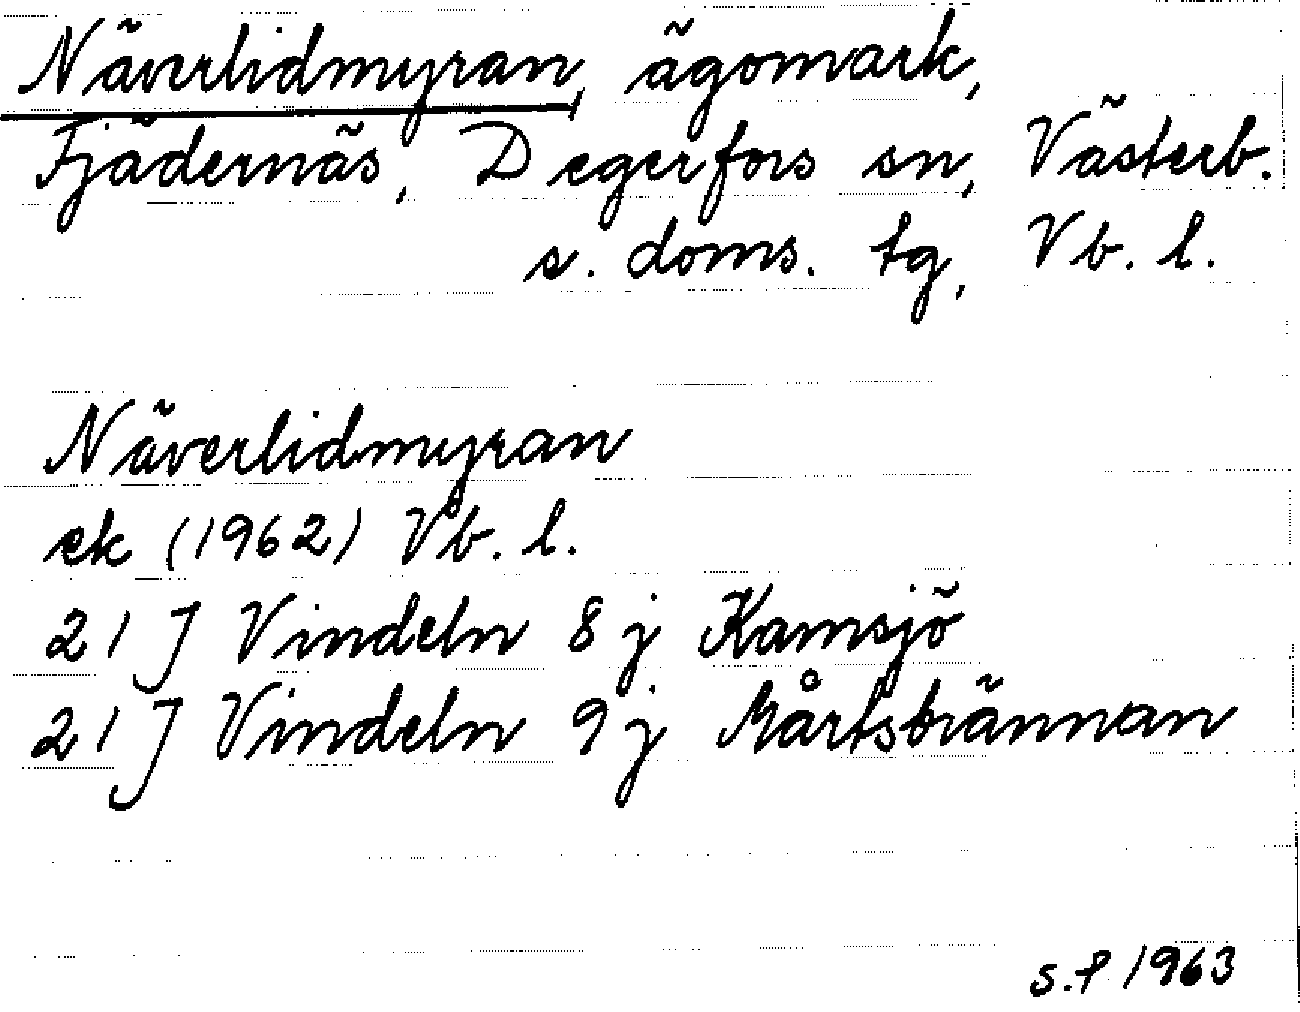 Näverlidmyran, ägomark,
Fjädernäs, Degerfors sn, Västerb.
s. doms. tg, Vb. l.
Näverlidmyran
ek (1962) Vb. l.
21 J Vindeln 8 j Kamsjö
21 J Vindeln 9 j Mårtsbrännan
s.f 1963